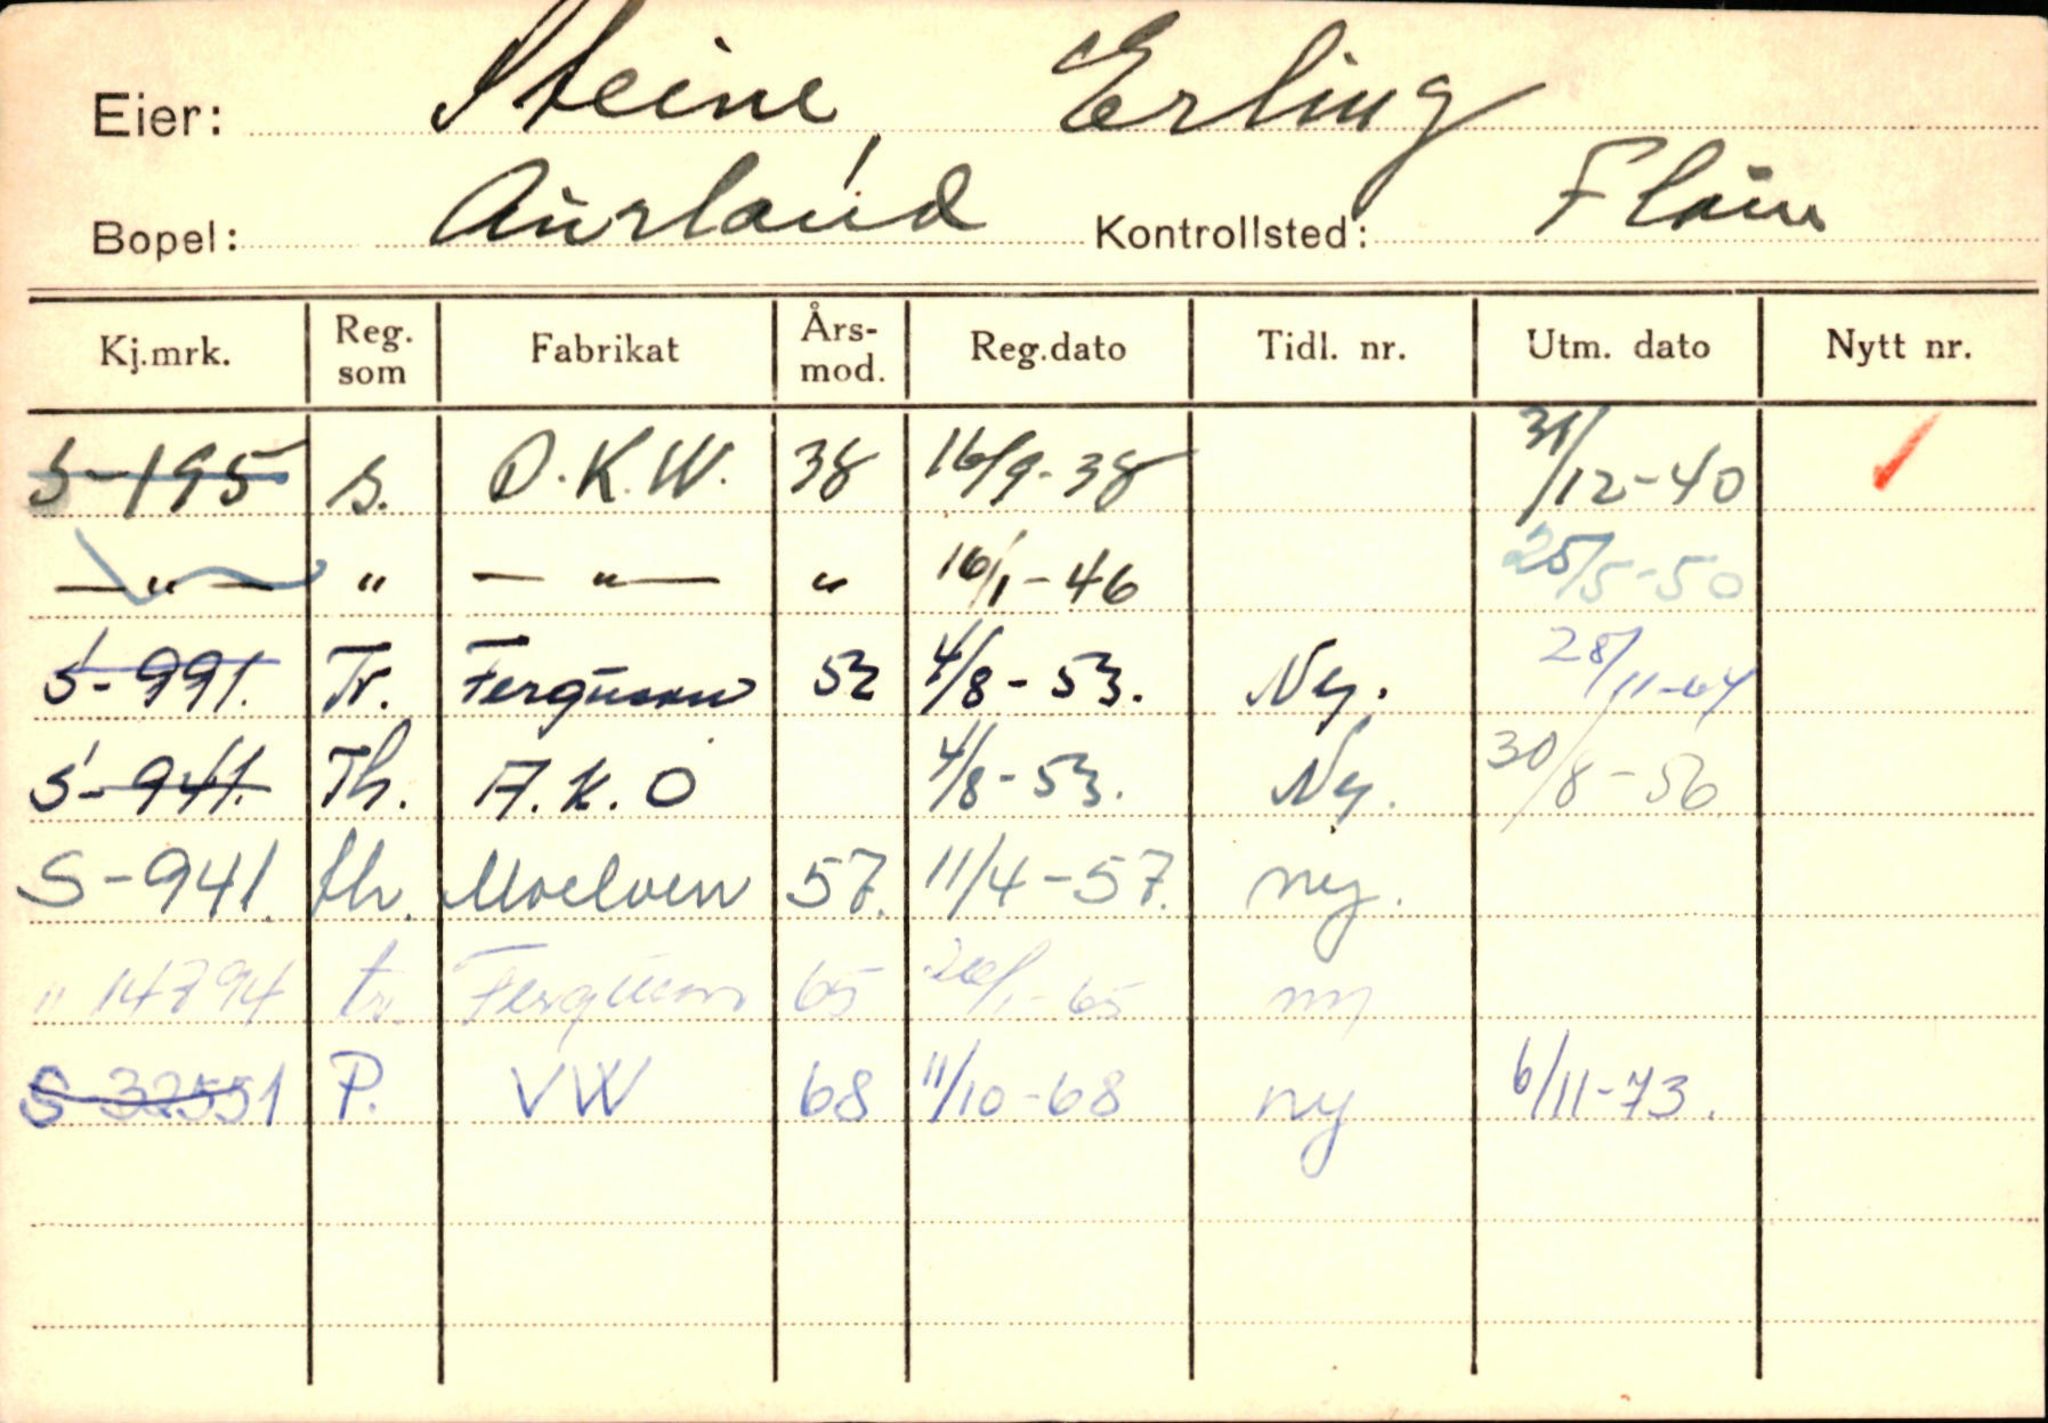 Eier: Steine, Erling
Bopel: Aurland Kontrollsted: Flåm
Kj.mrk. Reg. som Fabrikat Års-mod. Reg.dato Tidl. nr. Utm. dato Nytt nr.
S-195 s. D.K.W. 38 16/9-38 31/12-40
— " — " — " — " 16/1-46 25/5-50
S-991. Tr. Ferguson 52 4/8-53. Ny. 28/11-64
S-941. Th. A.K.O 4/8-53. Ny. 30/8-56
S-941. th. Moelven 57. 11/4-57. ny.
" 14794 tr. Ferguson 65 26/1-65 ny
S-32551 P. VW 68 11/10-68 ny 6/11-73.